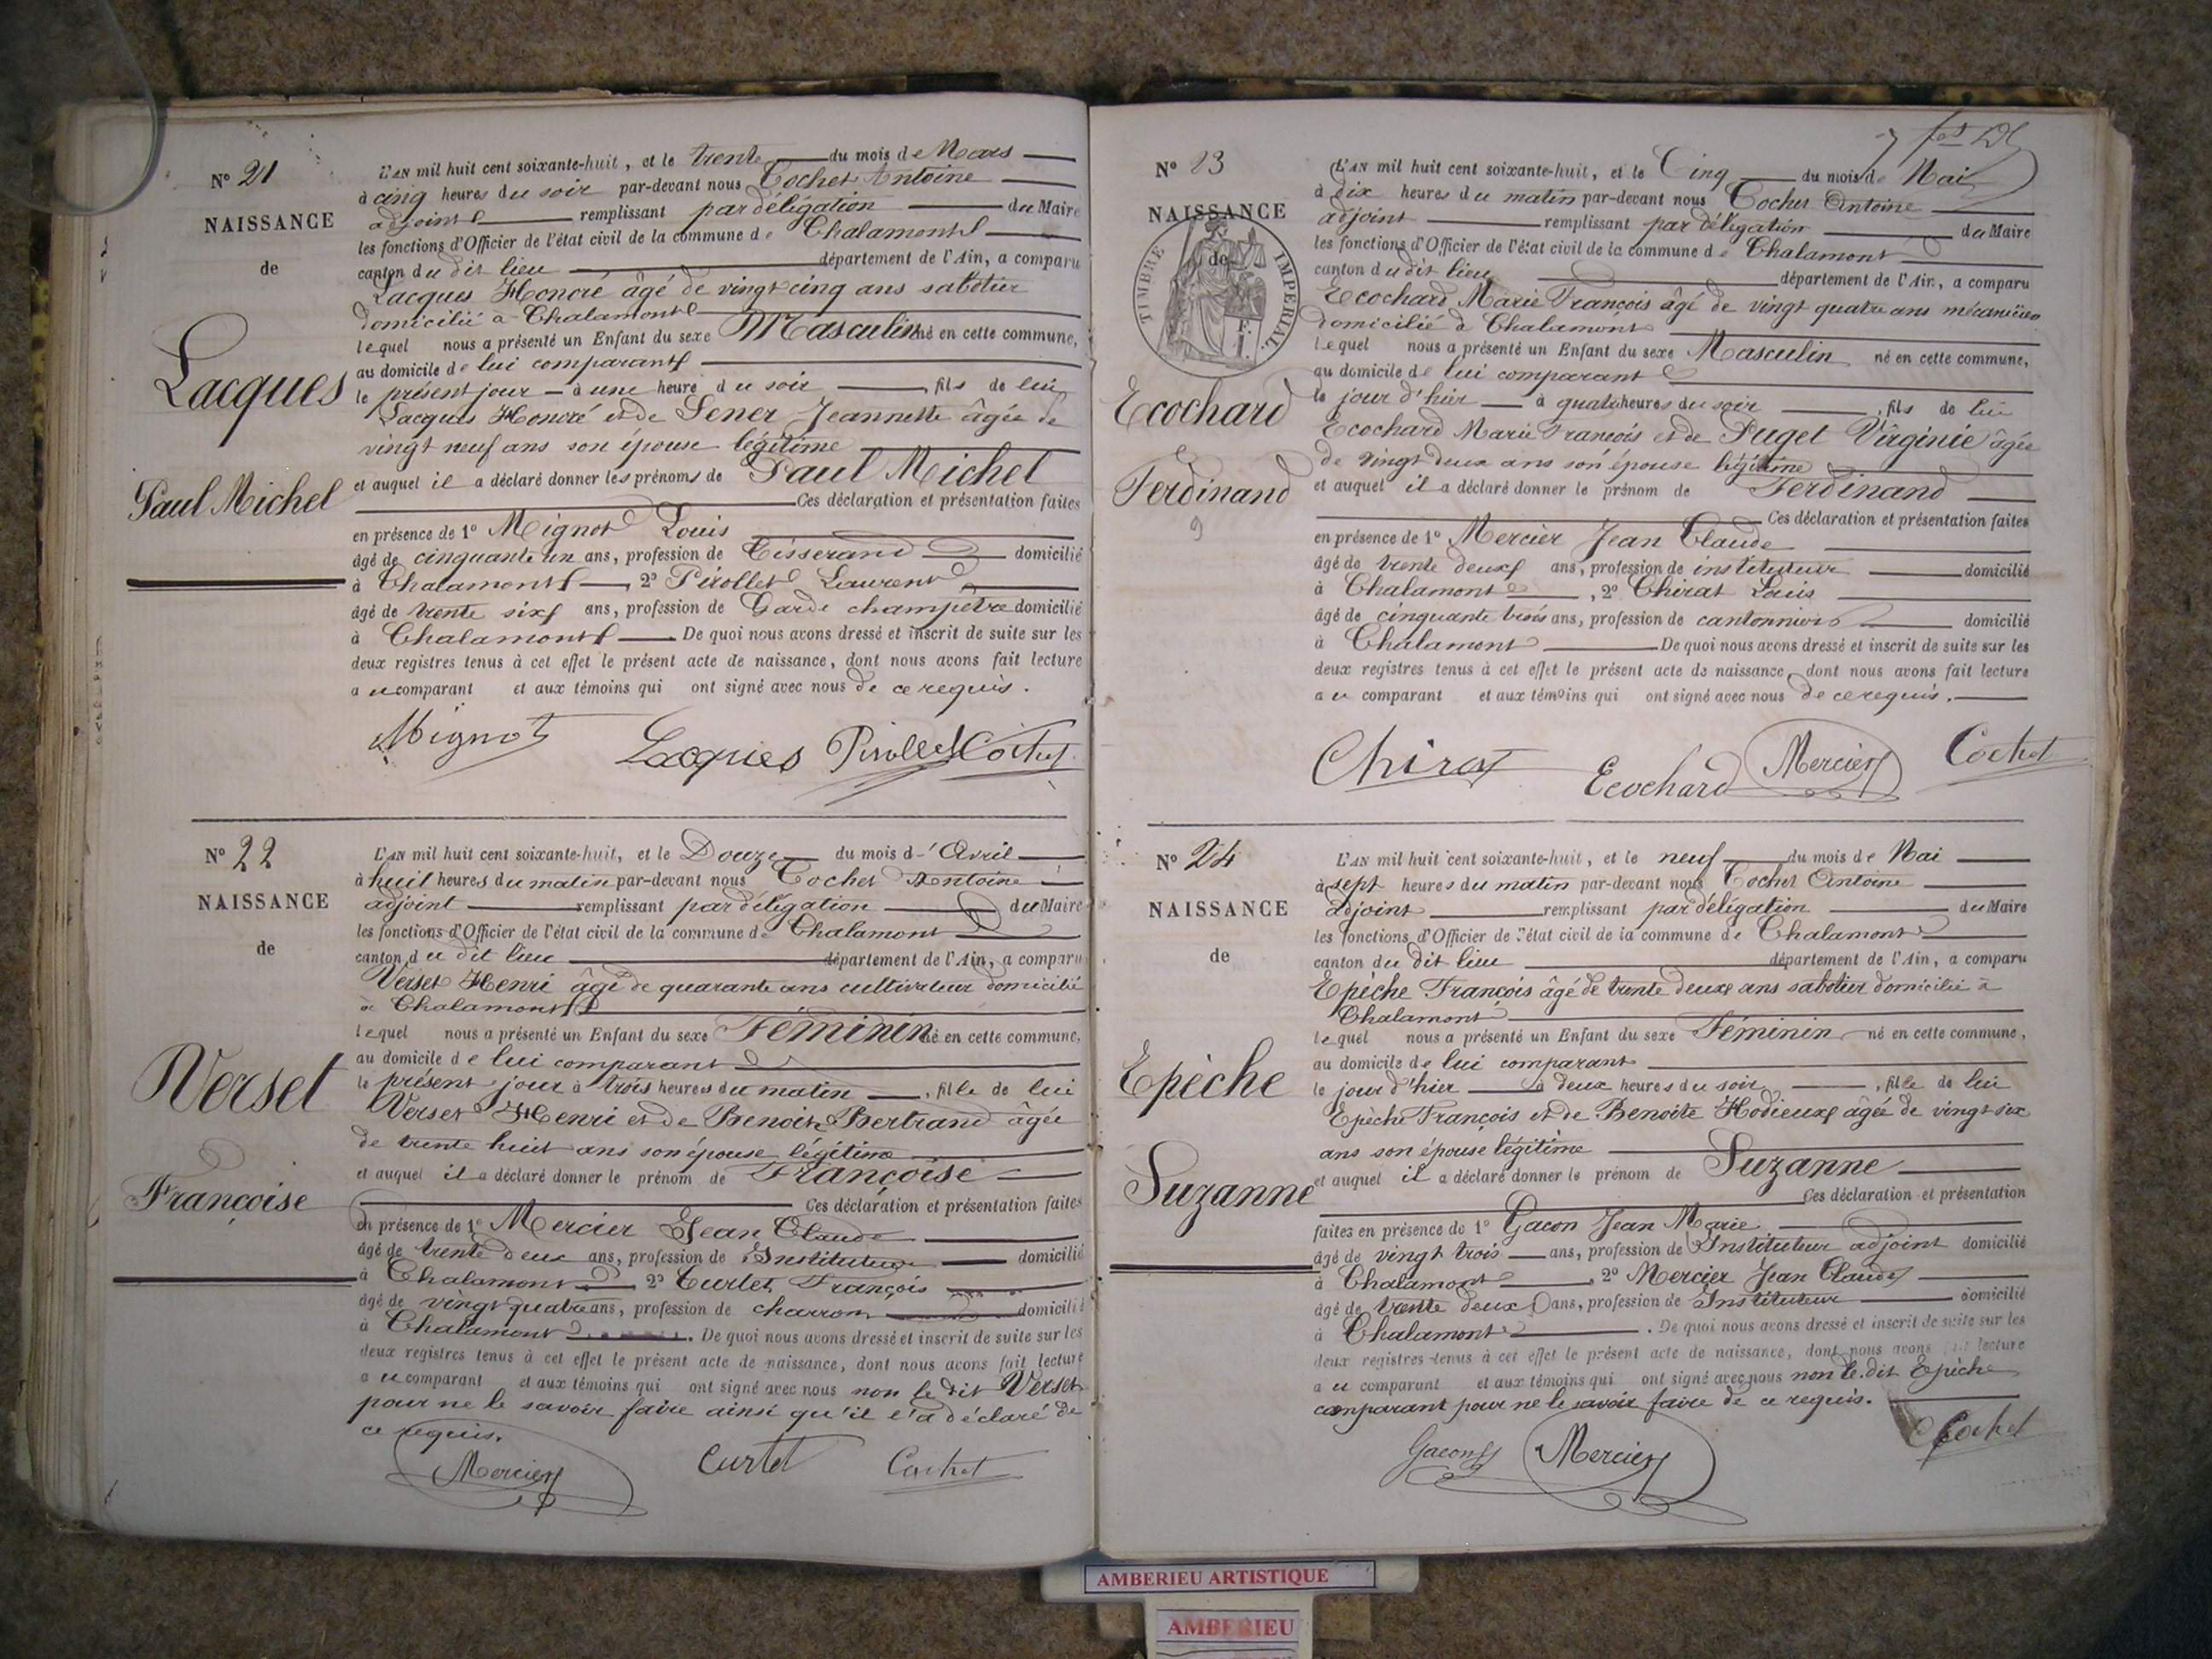 N° 21
NAISSANCE
de
Lacques
Paul Michel
L'AN mil huit cent soixante-huit, et le trente du mois de Mars
à cinq heures du soir par-devant nous Cochet Antoine
adjoint remplissant par délégation du Maire
les fonctions d'Officier de l'état civil de la commune de Chalamont
canton du dit lieu département de l'Ain, a comparu
Lacques Honoré âgé de vingt cinq ans sabotier
domicilié à Chalamont
lequel nous a présenté un Enfant du sexe Masculin né en cette commune,
au domicile de lui comparant
le présent jour à une heure du soir, fils de lui
Lacques Honoré et de Sener Jeannette âgée de
vingt neuf ans son épouse légitime
et auquel il a déclaré donner les prénoms de Paul Michel
Ces déclaration et présentation faites
en présence de 1° Mignot Louis
âgé de cinquante un ans, profession de Tisserand domicilié
à Chalamont, 2° Pirollet Laurent
âgé de trente six ans, profession de Garde champêtre domicilié
à Chalamont De quoi nous avons dressé et inscrit de suite sur les
deux registres tenus à cet effet le présent acte de naissance, dont nous avons fait lecture
au comparant et aux témoins qui ont signé avec nous de ce requis.
Mignot Lacques Pirollet Cochet
N° 22
NAISSANCE
de
Verset
Françoise
L'AN mil huit cent soixante-huit, et le Douze du mois d'Avril
à huit heures du matin par-devant nous Cochet Antoine
adjoint remplissant par délégation du Maire
les fonctions d'Officier de l'état civil de la commune de Chalamont
canton du dit lieu département de l'Ain, a comparu
Verset Henri âgé de quarante ans cultivateur domicilié
à Chalamont
lequel nous a présenté un Enfant du sexe Féminin né en cette commune,
au domicile de lui comparant
le présent jour à trois heures du matin, fille de lui
Verset Henri et de Benoite Bertrand âgée
de trente huit ans son épouse légitime
et auquel il a déclaré donner le prénom de Françoise
Ces déclaration et présentation faites
en présence de 1° Mercier Jean Claude
âgé de trente deux ans, profession de Instituteur domicilié
à Chalamont 2° Curtet François
âgé de vingt quatre ans, profession de charron domicilié
à Chalamont. De quoi nous avons dressé et inscrit de suite sur les
deux registres tenus à cet effet le présent acte de naissance, dont nous avons fait lecture
au comparant et aux témoins qui ont signé avec nous non le dit Verset
pour ne le savoir faire ainsi qu'il l'a déclaré de
ce requis.
Mercier Curtet Cochet
N° 23
NAISSANCE
de
TIMBRE IMPERIAL
Ecochard
Ferdinand
9
L'AN mil huit cent soixante-huit, et le Cinq du mois de Mai
à dix heures du matin par-devant nous Cochet Antoine
adjoint remplissant par délégation du Maire
les fonctions d'Officier de l'état civil de la commune de Chalamont
canton du dit lieu département de l'Ain, a comparu
Ecochard Marie François âgé de vingt quatre ans mécanicien
domicilié à Chalamont
lequel nous a présenté un Enfant du sexe Masculin né en cette commune,
au domicile de lui comparant
le jour d'hier à quatre heures du soir, fils de lui
Ecochard Marie François et de Puget Virginie âgée
de vingt deux ans son épouse légitime
et auquel il a déclaré donner le prénom de Ferdinand
Ces déclaration et présentation faites
en présence de 1° Mercier Jean Claude
âgé de trente deux ans, profession de instituteur domicilié
à Chalamont, 2° Chirat Louis
âgé de cinquante trois ans, profession de cantonnier domicilié
à Chalamont De quoi nous avons dressé et inscrit de suite sur les
deux registres tenus à cet effet le présent acte de naissance, dont nous avons fait lecture
au comparant et aux témoins qui ont signé avec nous de ce requis.
Chirat Ecochard Mercier Cochet
N° 24
NAISSANCE
de
Epèche
Suzanne
L'AN mil huit cent soixante-huit, et le neuf du mois de Mai
à sept heures du matin par-devant nous Cochet Antoine
adjoint remplissant par délégation du Maire
les fonctions d'Officier de l'état civil de la commune de Chalamont
canton du dit lieu département de l'Ain, a comparu
Epèche François âgé de trente deux ans sabotier domicilié à
Chalamont
lequel nous a présenté un Enfant du sexe Féminin né en cette commune,
au domicile de lui comparant
le jour d'hier à deux heures du soir, fille de lui
Epèche François et de Benoite Hodieux âgée de vingt six
ans son épouse légitime
et auquel il a déclaré donner le prénom de Suzanne
Ces déclaration et présentation
faites en présence de 1° Gacon Jean Marie
âgé de vingt trois ans, profession de Instituteur adjoint domicilié
à Chalamont, 2° Mercier Jean Claude
âgé de trente deux ans, profession de Instituteur domicilié
à Chalamont. De quoi nous avons dressé et inscrit de suite sur les
deux registres tenus à cet effet le présent acte de naissance, dont nous avons fait lecture
au comparant et aux témoins qui ont signé avec nous non le dit Epèche
comparant pour ne le savoir faire de ce requis.
Gacon Mercier Cochet
AMBERIEU ARTISTIQUE
AMBERIEU